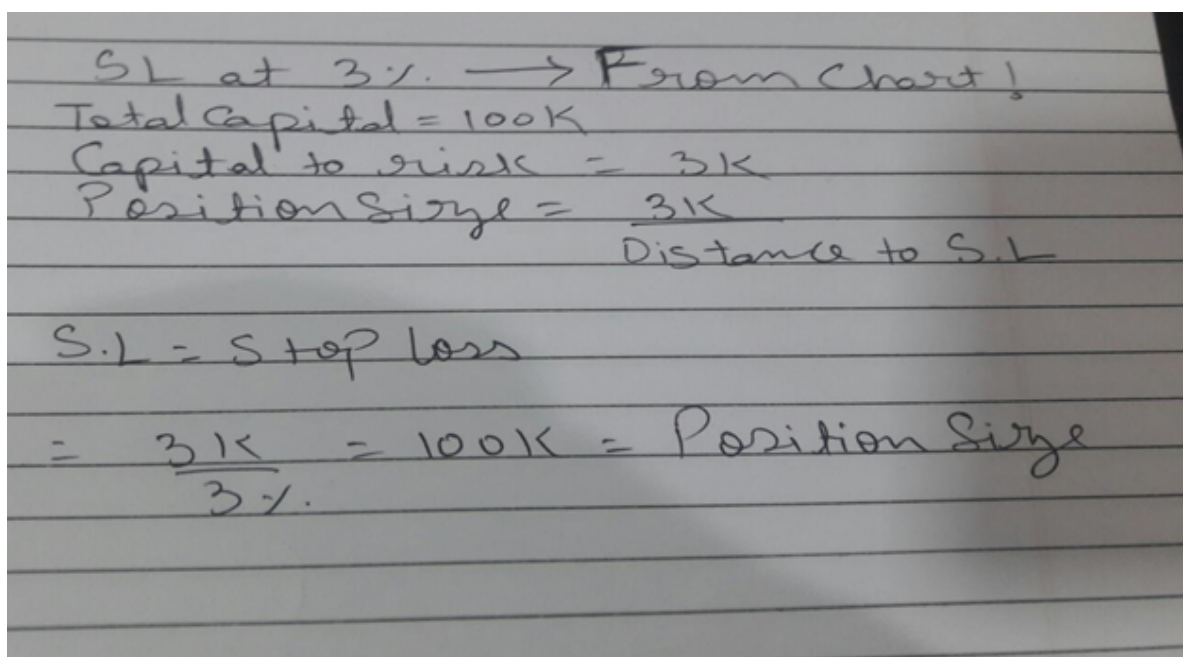 SL at 3% → From Chart!
Total Capital = 100K
Capital to risk = 3K
Position Size = 3K
Distance to S.L
S.L = Stop loss
= 3K = 100K = Position Size
3%